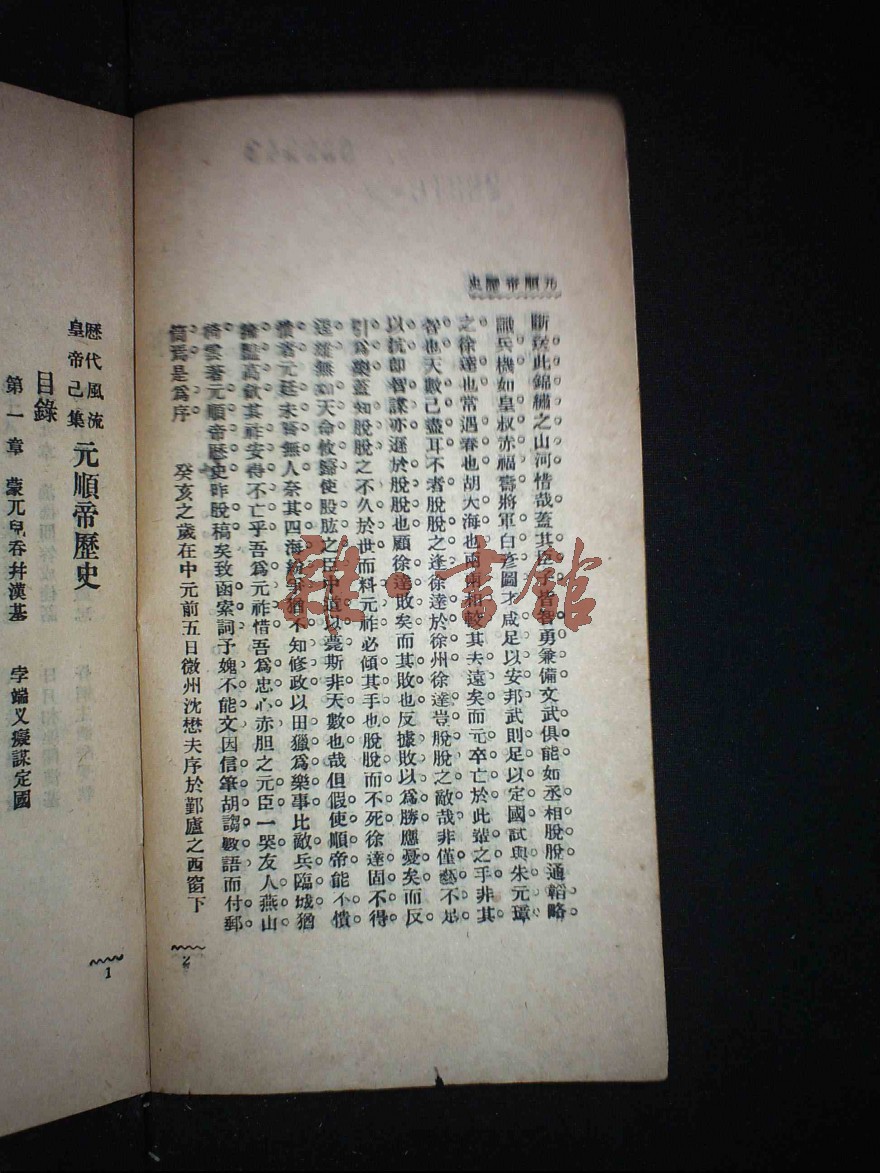 元順帝歷史
斷送此錦繡之山河惜哉蓋其臣子皆智勇兼備文武俱能如丞相脫脫通韜略
識兵機如皇叔赤福壽將軍白彥圖才咸足以安邦武則足以定國試與朱元璋
之徐達也常遇春也胡大海也兩兩相較其夫遠矣而元卒亡於此輩之手非其
智也天數已盡耳不者脫脫之逢徐達於徐州徐達豈脫脫之敵哉非僅藝不足
以抗卽智謀亦遜於脫脫也顧徐達敗矣而其敗也反據敗以為勝應憂矣而反
引為樂蓋知脫脫之不久於世而料元祚必傾其手也脫脫而不死徐達固不得
逞雄無如天命攸歸使股肱之臣中道以薨斯非天數也哉但假使順帝能不憒
憒者元廷未嘗無人奈其四海紛爭猶不知修政以田獵為樂事比敵兵臨城猶
高歌其祚安得不亡乎吾為元祚惜吾為忠心赤胆之元臣一哭友人燕山
綺雲著元順帝歷史昨脫稿矣致函索詞予媿不能文因信筆胡謅數語而付郵
筒焉是為序 癸亥之歲在中元前五日徽州沈懋夫序於鄞廬之西窗下
2
歷代風流
皇帝己集
元順帝歷史
目錄
第一章 蒙兀兒吞幷漢基 孛端义癡謀定國
1
雅·書館